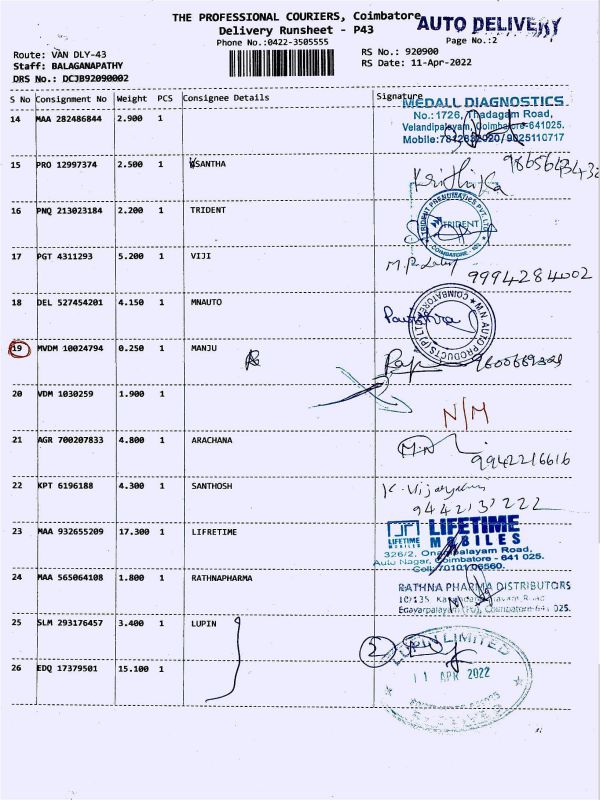 THE PROFESSIONAL COURIERS, Coimbatore
AUTO DELIVERY
Delivery Runsheet - P43
Phone No.:0422-3505555
Page No.:2
Route: VAN DLY-43
RS No.: 920900
Staff: BALAGANAPATHY
RS Date: 11-Apr-2022
DRS No.: DCJB92090002
S No Consignment No Weight PCS Consignee Details Signature
14 MAA 282486844 2.900 1
MEDALL DIAGNOSTICS
No.:1726, Thadagam Road,
Velandipalayam, Coimbatore-641025.
15 PRO 12997374 2.500 1 VSANTHA
Krithika
16 PNQ 213023184 2.200 1 TRIDENT
TRIDENT PNEUMATICS PVT. LTD.
TRIDENT
COIMBATORE
17 PGT 4311293 5.200 1 VIJI
9994284002
18 DEL 527454201 4.150 1 MNAUTO
M.N. AUTO PRODUCTS (P) LTD
COIMBATORE
19 MVDM 10024794 0.250 1 MANJU
20 VDM 1030259 1.900 1
N/M
21 AGR 700207833 4.800 1 ARACHANA
9942216616
22 KPT 6196188 4.300 1 SANTHOSH
23 MAA 932655209 17.300 1 LIFRETIME
LIFETIME MOBILES
LIFETIME
MOBILES
Auto Nagar, Coimbatore - 641 025.
24 MAA 565064108 1.800 1 RATHNAPHARMA
RATHNA PHARMA DISTRIBUTORS
25 SLM 293176457 3.400 1 LUPIN
2
LUPIN LIMITED
11 APR 2022
26 EDQ 17379501 15.100 1